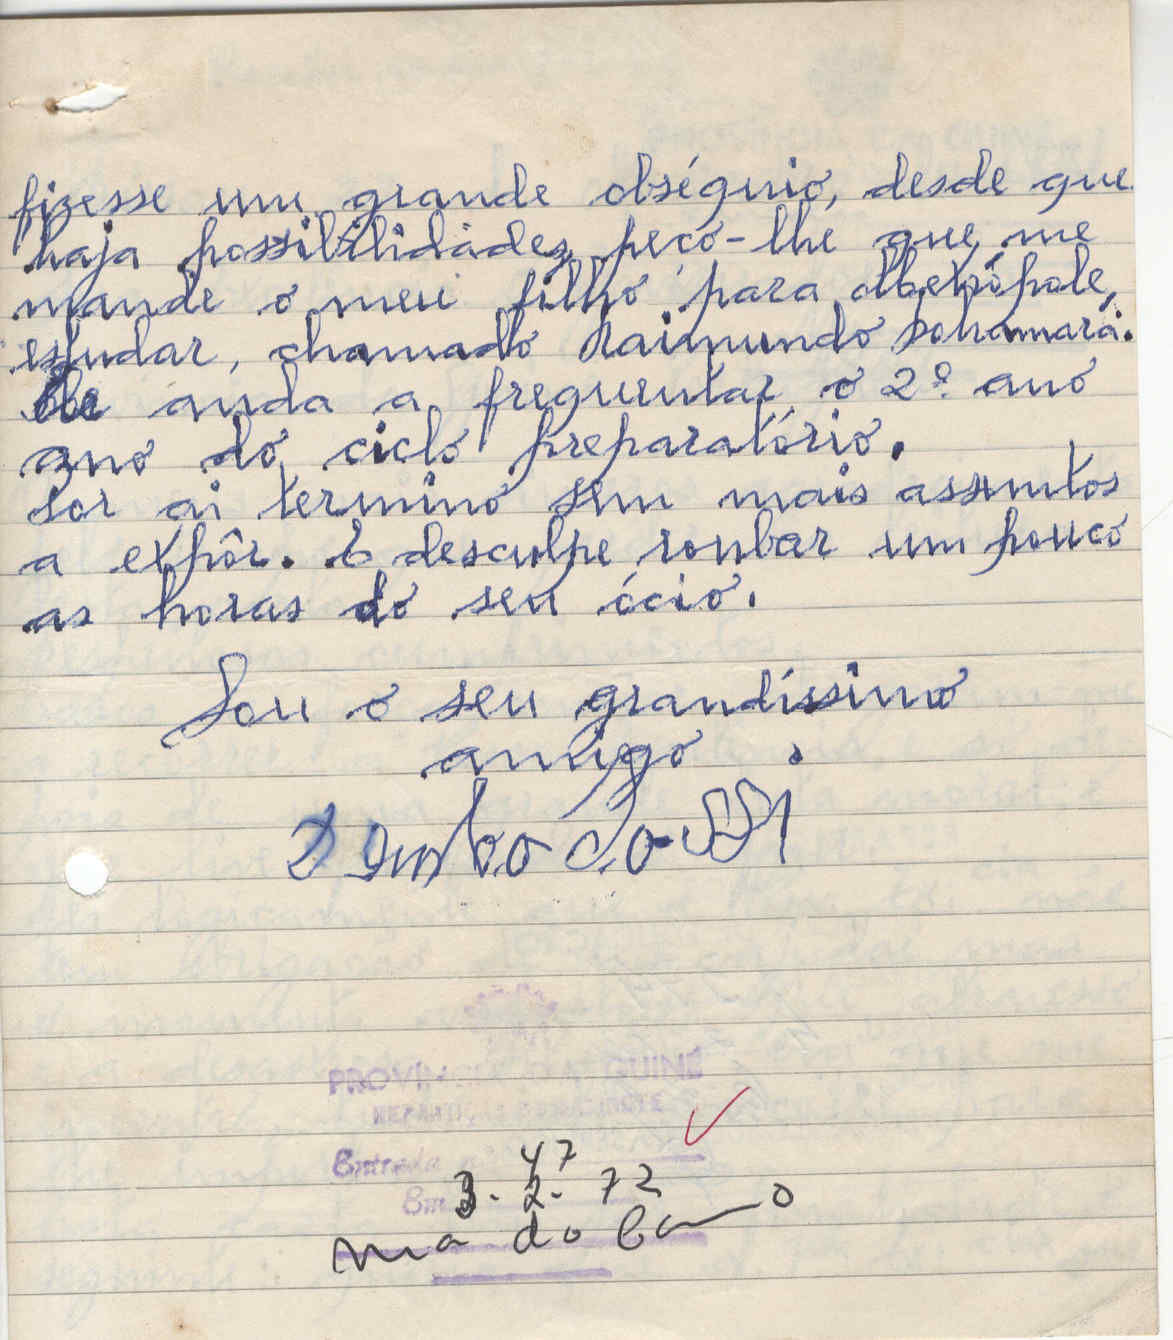 fizesse um grande obséquio, desde que
haja possibilidades, peço-lhe que, me
mande o meu filho para
estudar, chamado Raimundo
Ele anda a frequentar o 2º. ano
ano do ciclo preparatório.
Por ai termino sem mais assuntos
a expôr. E desculpe roubar um pouco
as horas do seu ócio.
Sou o seu grandíssimo
amigo.
PROVÍNCIA DA GUINÉ
REPARTIÇÃO DO GABINETE
Entrada nº 47
Em 3. 2. 72